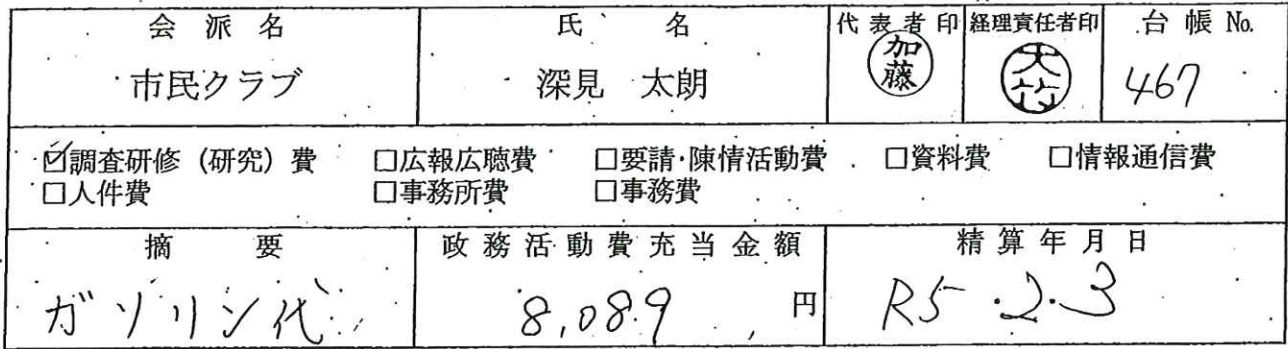 会派名 氏名 代表者印 経理責任者印 台帳No.
市民クラブ 深見 太朗 加藤 天竹 467
☑調査研修(研究)費 □広報広聴費 □要請・陳情活動費 □資料費 □情報通信費
□人件費 □事務所費 □事務費
摘要 政務活動費充当金額 精算年月日
ガソリン代 8,089 円 R5.2.3